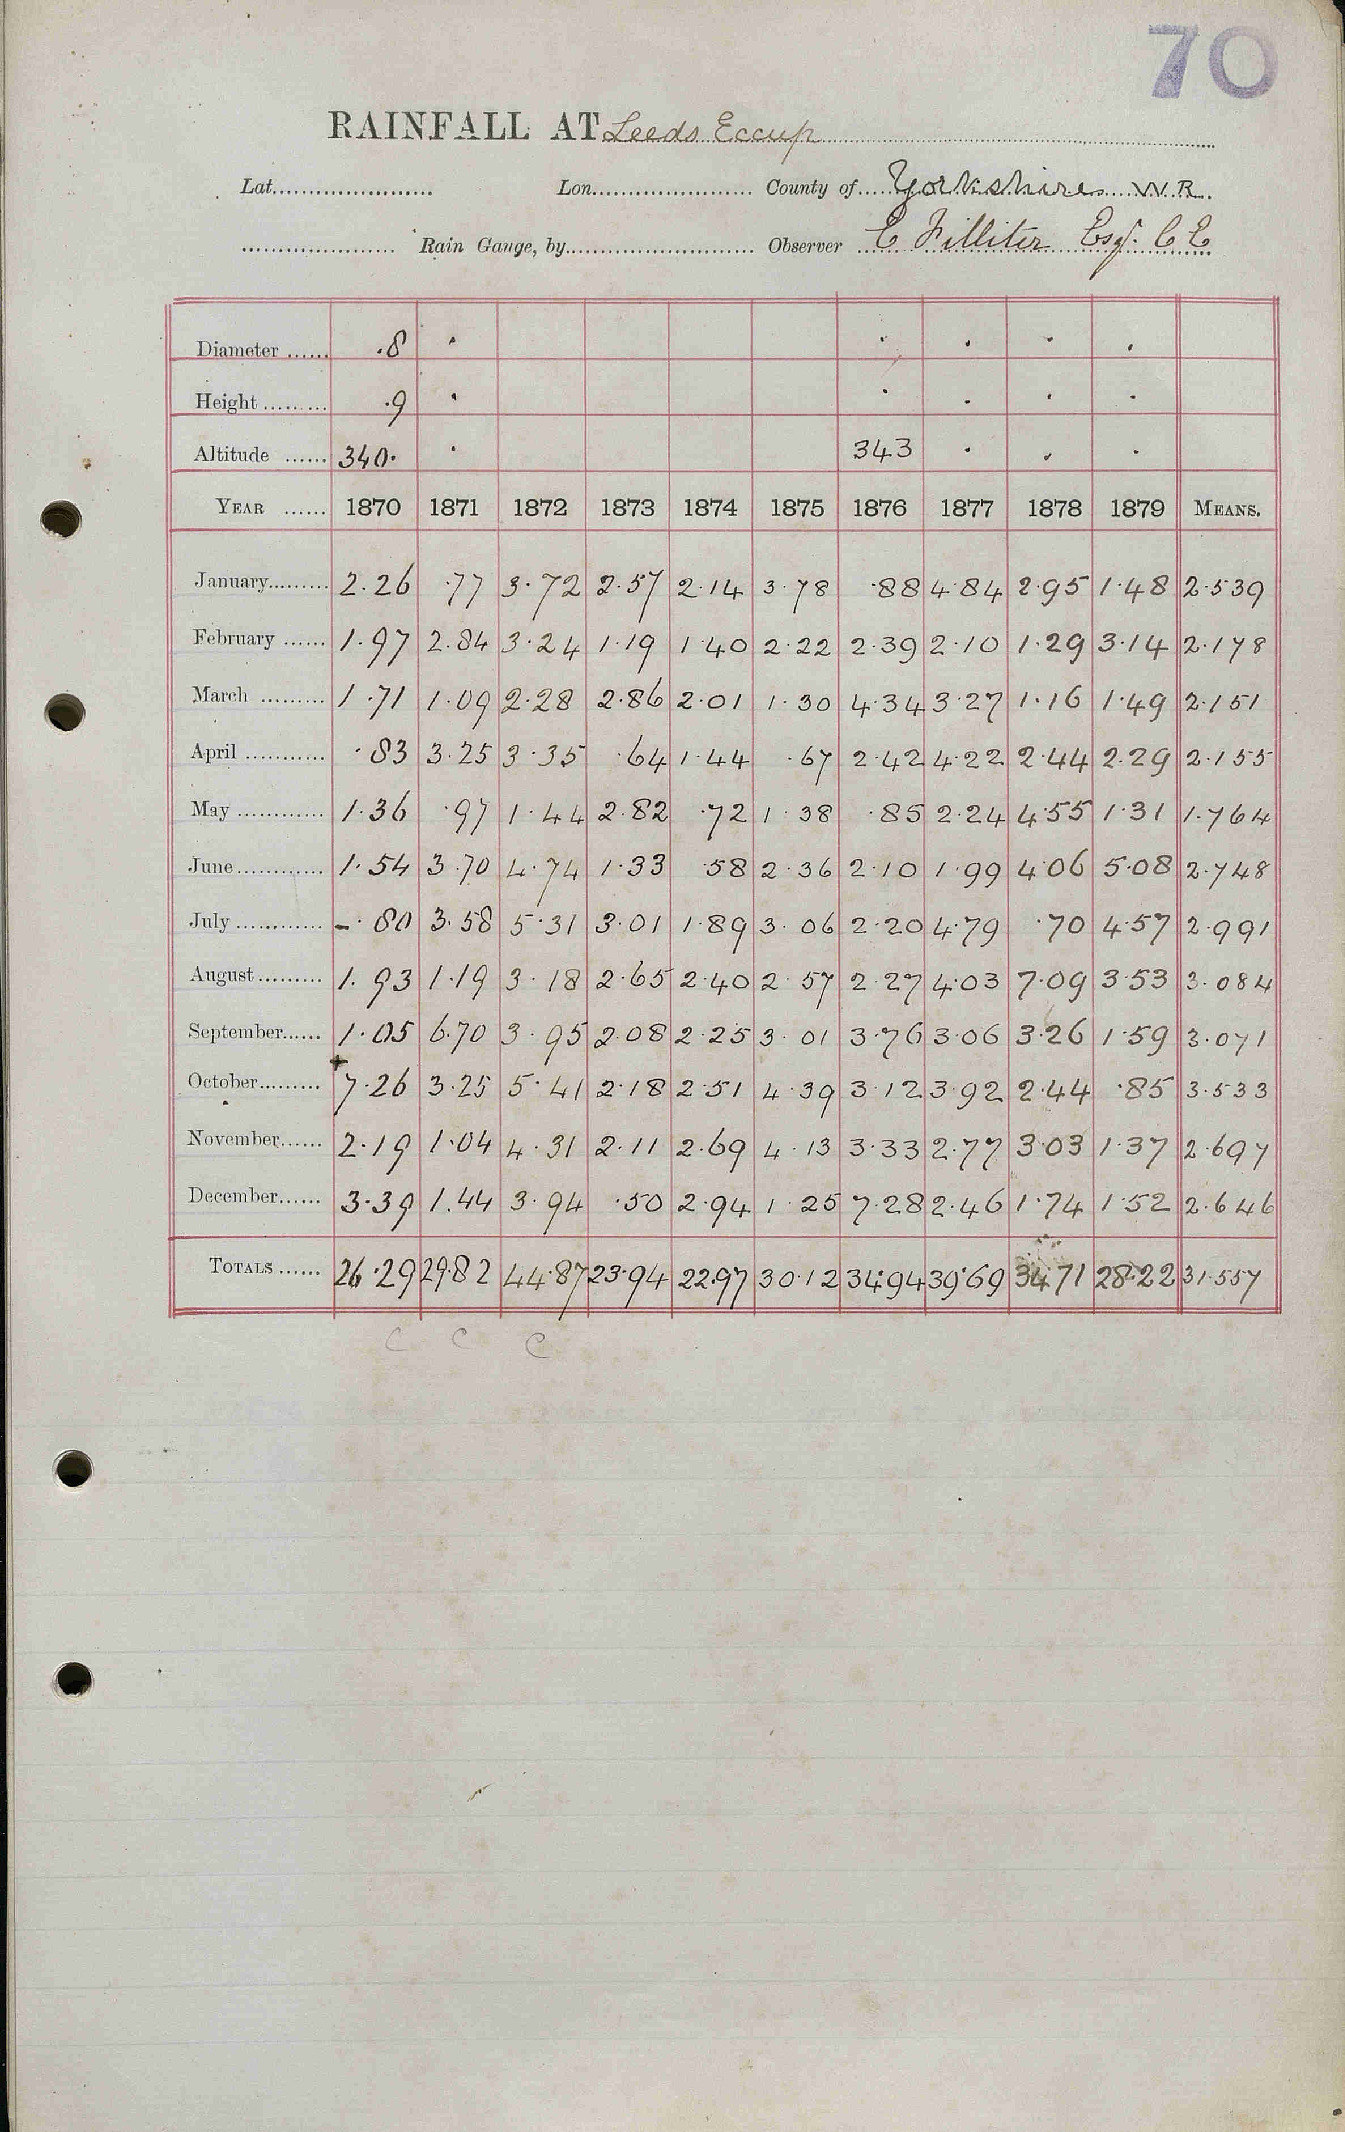 70
RAINFALL AT Leeds Eccup
Lat. Lon. County of Yorkshire W.R.
Rain Gauge, by Observer E Filliter Esq. C E
Diameter ...... .8 · · · · ·
Height ......... .9 · · · · ·
Altitude ...... 340. · 343 · · ·
YEAR ...... 1870 1871 1872 1873 1874 1875 1876 1877 1878 1879 MEANS.
January......... 2.26 .77 3.72 2.57 2.14 3.78 .88 4.84 2.95 1.48 2.539
February ...... 1.97 2.84 3.24 1.19 1.40 2.22 2.39 2.10 1.29 3.14 2.178
March ......... 1.71 1.09 2.28 2.86 2.01 1.30 4.34 3.27 1.16 1.49 2.151
April ............ .83 3.25 3.35 .64 1.44 .67 2.42 4.22 2.44 2.29 2.155
May ............ 1.36 .97 1.44 2.82 .72 1.38 .85 2.24 4.55 1.31 1.764
June............ 1.54 3.70 4.74 1.33 .58 2.36 2.10 1.99 4.06 5.08 2.748
July ............ - .80 3.58 5.31 3.01 1.89 3.06 2.20 4.79 .70 4.57 2.991
August......... 1.93 1.19 3.18 2.65 2.40 2.57 2.27 4.03 7.09 3.53 3.084
September...... 1.05 6.70 3.95 2.08 2.25 3.01 3.76 3.06 3.26 1.59 3.071
October......... + 7.26 3.25 5.41 2.18 2.51 4.39 3.12 3.92 2.44 .85 3.533
November...... 2.19 1.04 4.31 2.11 2.69 4.13 3.33 2.77 3.03 1.37 2.697
December...... 3.39 1.44 3.94 .50 2.94 1.25 7.28 2.46 1.74 1.52 2.646
TOTALS ...... 26.29 29.82 44.87 23.94 22.97 30.12 34.94 39.69 34.71 28.22 31.557
C C C